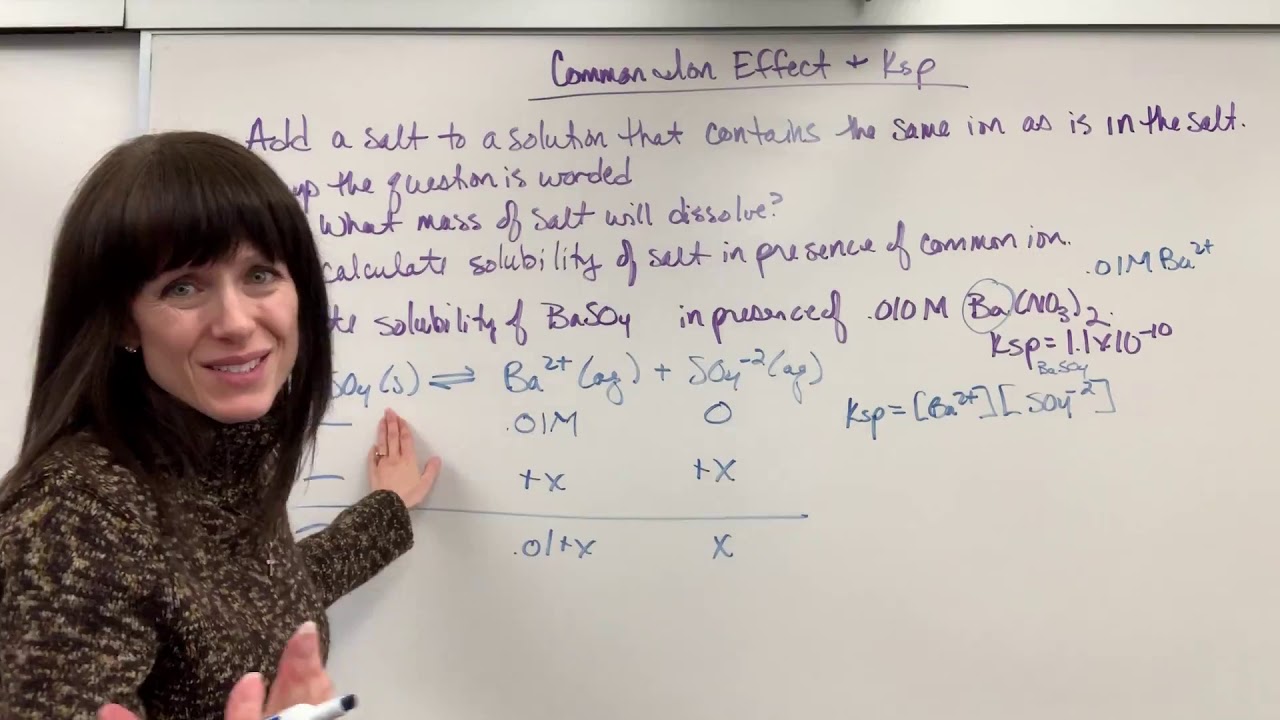 Common Ion Effect + Ksp
Add a salt to a solution that contains the same ion as is in the salt.
the question is worded
What mass of salt will dissolve?
calculate solubility of salt in presence of common ion.
.01M Ba²⁺
solubility of BaSO₄ in presence of .010M Ba(NO₃)₂.
Ksp = 1.1×10⁻¹⁰
BaSO₄
SO₄(s) ⇌ Ba²⁺(aq) + SO₄⁻²(aq)
Ksp = [Ba²⁺][SO₄⁻²]
— .01M 0
— +x +x
— .01+x x